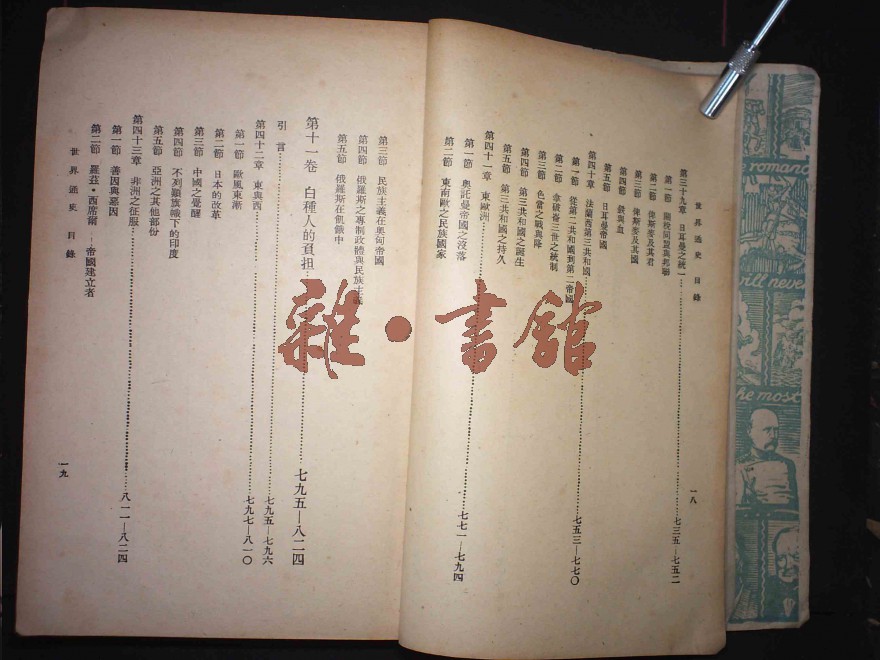 世界通史 目錄
第三十九章 日耳曼之統一………七三五—七五二
第一節 關稅同盟與邦聯
第二節 俾斯麥及其君
第三節 俾斯麥及其國
第四節 鐵與血
第五節 日耳曼帝國
第四十章 法蘭西第三共和國………七五三—七七〇
第一節 從第二共和國到第二帝國
第二節 拿破崙三世之統制
第三節 色當之戰與降
第四節 第三共和國之誕生
第五節 第三共和國之持久
第四十一章 東歐洲………七七一—七九四
第一節 奧託曼帝國之沒落
第二節 東南歐之民族國家
一八
第三節 民族主義在奧匈帝國
第四節 俄羅斯之專制政體與民族主義
第五節 俄羅斯在飢餓中
第十一卷 白種人的負担………七九五—八二四
引言………七九五—七九六
第四十二章 東與西………七九七—八一〇
第一節 歐風東漸
第二節 日本的改革
第三節 中國之覺醒
第四節 不列顚旗幟下的印度
第五節 亞洲之其他部份
第四十三章 非洲之征服………八一一—八二四
第一節 善因與惡因
第二節 羅茲・西席爾—帝國建立者
世界通史 目錄
一九
雜・書館
romanc
will never
he most